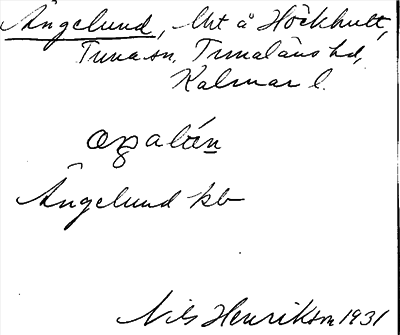 Ängelund, lht å Höckhult,
Tuna sn, Tunaläns hd,
Kalmar l.
Ängelund kb
Nils Henrikson 1931